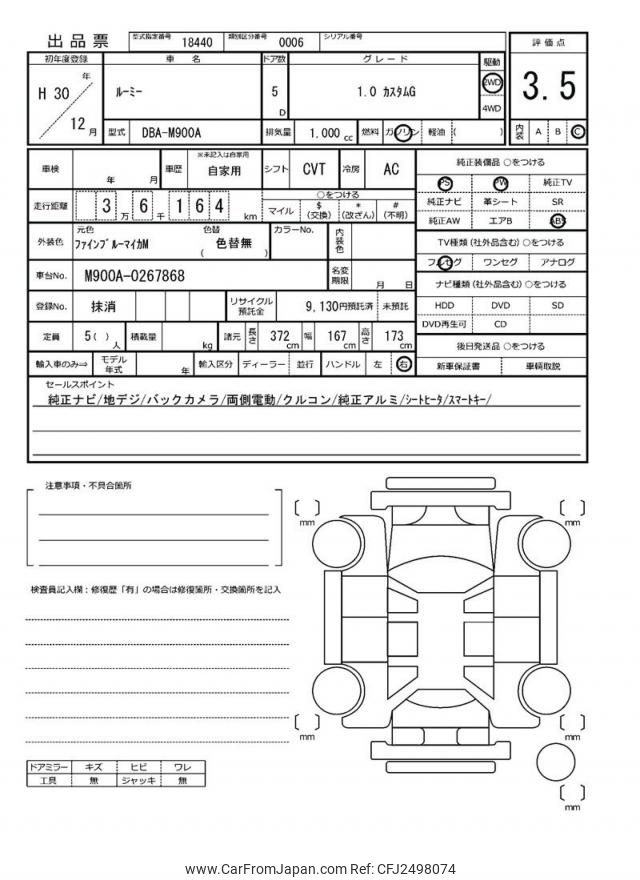 出品票
型式指定番号 18440 類別区分番号 0006 シリアル番号
初年度登録 車名 ドア数 グレード 駆動 評価点
H 30 年 12 月 ルーミー 5 D 1.0 カスタムG 2WD 4WD 3.5
型式 DBA-M900A 排気量 1.000 cc 燃料 ガソリン 軽油 ( ) 内装 A B C
車検 年 月 車歴 ※未記入は自家用 自家用 シフト CVT 冷房 AC
走行距離 3 万 6 千 1 6 4 km ○をつける
マイル $ (交換) * (改ざん) # (不明)
外装色 元色 ファインブルーマイカM 色替 ( 色替無 ) カラーNo. 内装色
車台No. M900A-0267868 名変期限 月 日
登録No. 抹消 リサイクル預託金 9,130円預託済 未預託
定員 5( ) 人 積載量 kg 諸元 長さ 372 cm 幅 167 cm 高さ 173 cm
輸入車のみ⇒ モデル年式 年 輸入区分 ディーラー 並行 ハンドル 左 右
純正装備品 ○をつける
PS PW 純正TV
純正ナビ 革シート SR
純正AW エアB ABS
TV種類(社外品含む) ○をつける
フルセグ ワンセグ アナログ
ナビ種類(社外品含む) ○をつける
HDD DVD SD
DVD再生可 CD
後日発送品 ○をつける
新車保証書 車輌取説
セールスポイント
純正ナビ/地デジ/バックカメラ/両側電動/クルコン/純正アルミ/シートヒータ/スマートキー/
注意事項・不具合箇所
検査員記入欄：修復歴「有」の場合は修復箇所・交換箇所を記入
[ ] mm
[ ] mm
[ ] mm
[ ] mm
[ ] mm
ドアミラー キズ ヒビ ワレ
工具 無 ジャッキ 無
www.CarFromJapan.com Ref: CFJ2498074